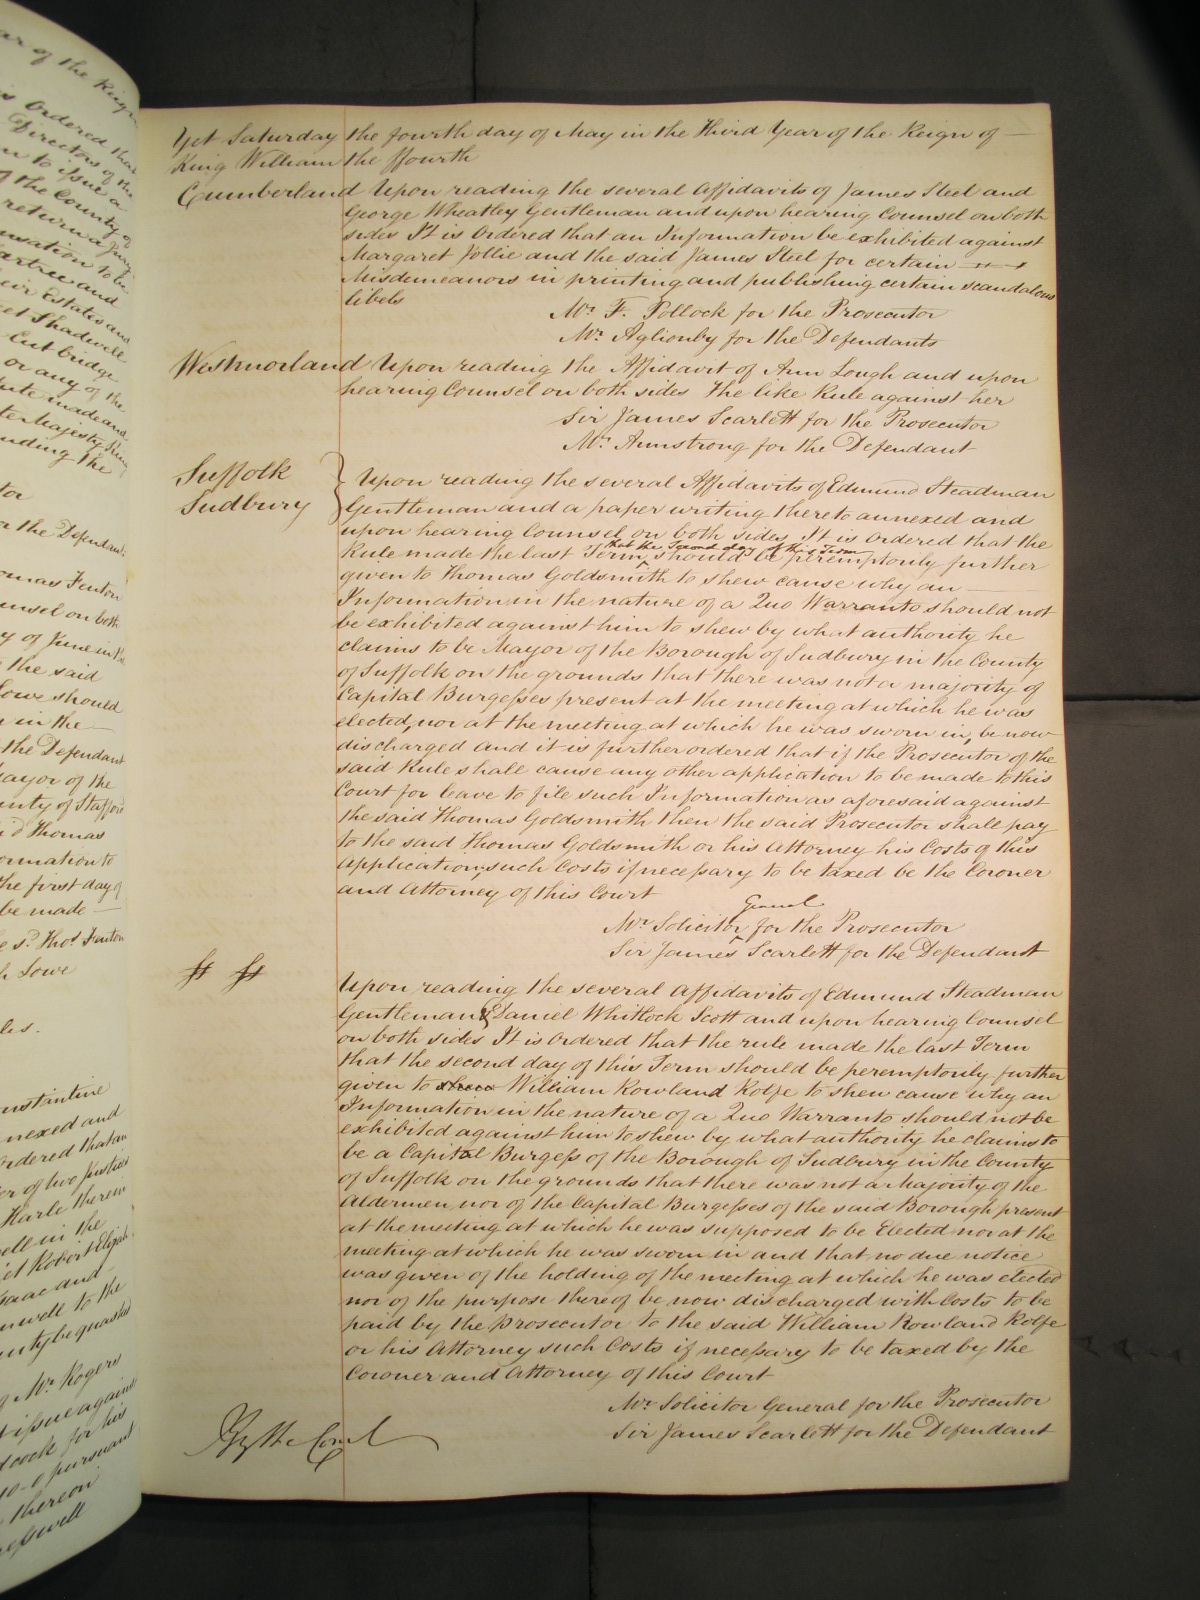 ar of the Reign
is Ordered that
Directors of the
m to issue a
of the County of
return a Jury
nsation to be
artree and
eir Estates and
eet Shadwell
Cut bridge
or any of the
tute made and
te Majesty King
nding the
tor
r the Defendant
omas Fenton
unsel on both
y of June in the
the said
Lowe should
n in the
the Defendant
Mayor of the
unty of Stafford
id Thomas
ormation to
the first day of
be made
e sd. Thos. Fenton
h Lowe
les.
onstantine
nnexed and
rdered that an
er of two Justices
Harle therein
well in the
et Robert Elijah
Isaac and
nwell to the
unty be quashed
g Mr. Rogers
t issue against
dcock for his
10-0 pursuant
thereon
esswell
Yet Saturday the fourth day of May in the Third Year of the Reign of
King William the ffourth
Cumberland Upon reading the several Affidavits of James Steel and
George Wheatley Gentleman and upon hearing Counsel on both
sides It is Ordered that an Information be exhibited against
Margaret Jollie and the said James Steel for certain
Misdemeanors in printing and publishing certain scandalous
libels
Mr. F. Pollock for the Prosecutor
Mr. Aglionby for the Defendants
Westmorland Upon reading the Affidavit of Ann Lough and upon
hearing Counsel on both sides The like Rule against her
Sir James Scarlett for the Prosecutor
Mr. Armstrong for the Defendant
Suffolk
Sudbury
Upon reading the several Affidavits of Edmund Steadman
Gentleman and a paper writing thereto annexed and
upon hearing Counsel on both sides It is Ordered that the
that the Second day of this Term
Rule made the last Term should be peremptorily further
given to Thomas Goldsmith to shew cause why an
Information in the nature of a Quo Warranto should not
be exhibited against him to shew by what authority he
claims to be Mayor of the Borough of Sudbury in the County
of Suffolk on the grounds that there was not a majority of
Capital Burgesses present at the meeting at which he was
elected, nor at the meeting at which he was sworn in, be now
discharged And it is further ordered that if the Prosecutor of the
said Rule shall cause any other application to be made to this
Court for leave to file such Information as aforesaid against
the said Thomas Goldsmith then the said Prosecutor shall pay
to the said Thomas Goldsmith or his Attorney his Costs of this
Application, such Costs if necessary to be taxed be the Coroner
and Attorney of this Court
General
Mr. Solicitor for the Prosecutor
Sir James Scarlett for the Defendant
St St
Upon reading the several Affidavits of Edmund Steadman
Gentleman & Daniel Whitlock Scott and upon hearing Counsel
on both sides It is Ordered that the rule made the last Term
that the second day of this Term should be peremptorily further
given to shew William Rowland Rolfe to shew cause why an
Information in the nature of a Quo Warranto should not be
exhibited against him to shew by what authority he claims to
be a Capital Burgess of the Borough of Sudbury in the County
of Suffolk on the grounds that there was not a Majority of the
Aldermen nor of the Capital Burgesses of the said Borough present
at the meeting at which he was supposed to be Elected nor at the
meeting at which he was sworn in and that no due notice
was given of the holding of the meeting at which he was elected
nor of the purpose thereof be now discharged with Costs to be
paid by the prosecutor to the said William Rowland Rolfe
or his Attorney such Costs if necessary to be taxed by the
Coroner and Attorney of this Court
Mr. Solicitor General for the Prosecutor
Sir James Scarlett for the Defendant
By the Court